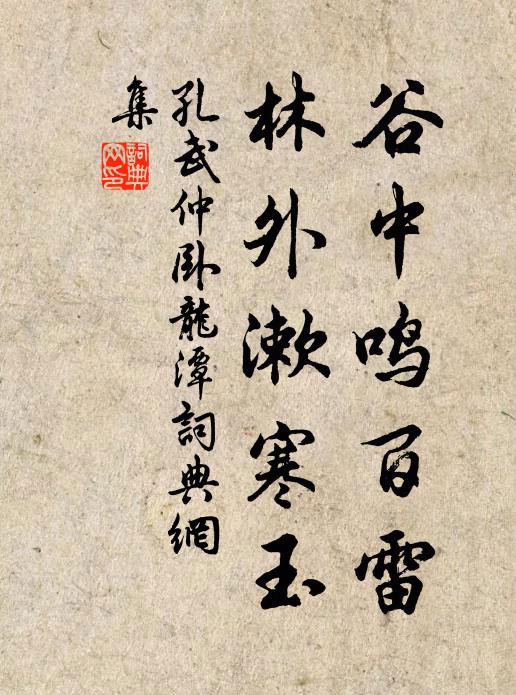 谷中鸣百雷
林外漱寒玉
孔武仲卧龍潭詞典網
集
詞典
网印